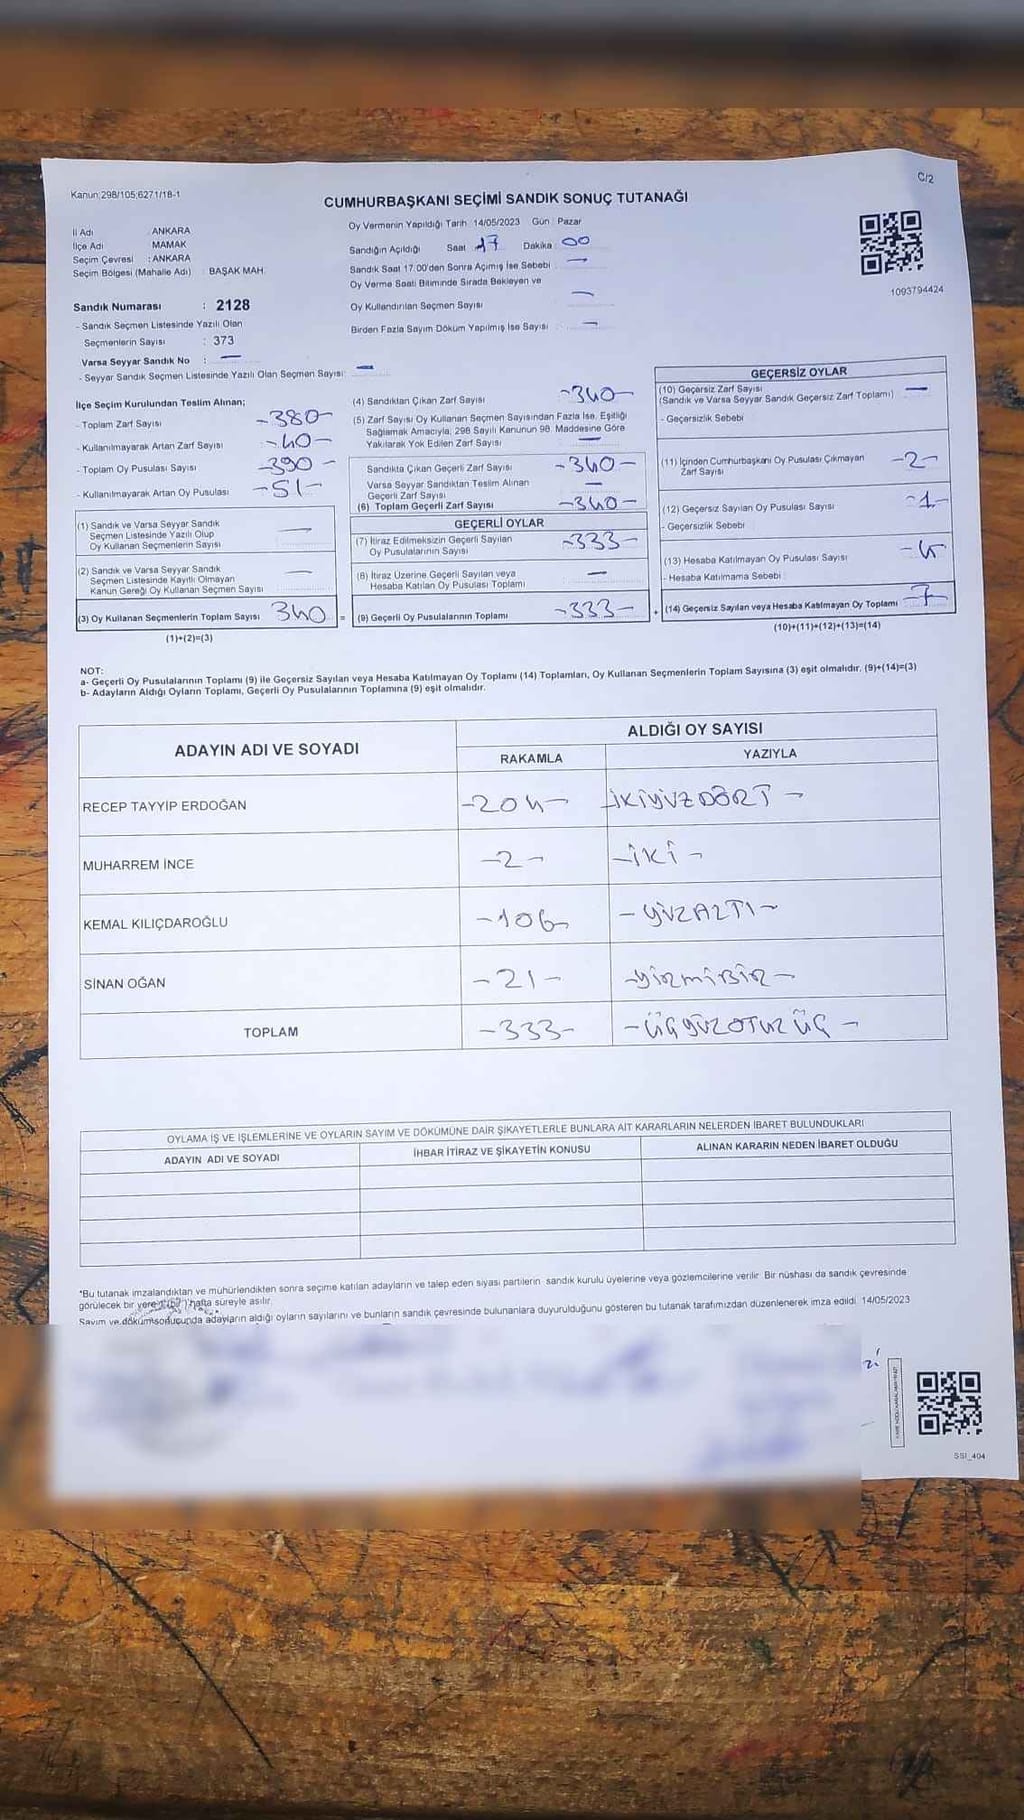 Kanun;298/105;6271/18-1
C/2
CUMHURBAŞKANI SEÇİMİ SANDIK SONUÇ TUTANAĞI
İl Adı : ANKARA
İlçe Adı : MAMAK
Seçim Çevresi : ANKARA
Seçim Bölgesi (Mahalle Adı) : BAŞAK MAH.
Sandık Numarası : 2128
- Sandık Seçmen Listesinde Yazılı Olan
Seçmenlerin Sayısı : 373
Varsa Seyyar Sandık No : —
- Seyyar Sandık Seçmen Listesinde Yazılı Olan Seçmen Sayısı: —
Oy Vermenin Yapıldığı Tarih 14/05/2023 Gün : Pazar
Sandığın Açıldığı Saat 17 Dakika : 00
Sandık Saat 17:00'den Sonra Açımış İse Sebebi : —
Oy Verme Saati Bitiminde Sırada Bekleyen ve
Oy Kullandırılan Seçmen Sayısı —
Birden Fazla Sayım Döküm Yapılmış İse Sayısı : —
1093794424
İlçe Seçim Kurulundan Teslim Alınan;
- Toplam Zarf Sayısı -380-
- Kullanılmayarak Artan Zarf Sayısı -40-
- Toplam Oy Pusulası Sayısı -390-
- Kullanılmayarak Artan Oy Pusulası -51-
(1) Sandık ve Varsa Seyyar Sandık
Seçmen Listesinde Yazılı Olup
Oy Kullanan Seçmenlerin Sayısı —
(2) Sandık ve Varsa Seyyar Sandık
Seçmen Listesinde Kayıtlı Olmayan
Kanun Gereği Oy Kullanan Seçmen Sayısı —
(3) Oy Kullanan Seçmenlerin Toplam Sayısı 340 =
(1)+(2)=(3)
(4) Sandıktan Çıkan Zarf Sayısı -340-
(5) Zarf Sayısı Oy Kullanan Seçmen Sayısından Fazla İse, Eşitliği
Sağlamak Amacıyla; 298 Sayılı Kanunun 98. Maddesine Göre
Yakılarak Yok Edilen Zarf Sayısı —
Sandıkta Çıkan Geçerli Zarf Sayısı -340-
Varsa Seyyar Sandıktan Teslim Alınan
Geçerli Zarf Sayısı —
(6) Toplam Geçerli Zarf Sayısı -340-
GEÇERLİ OYLAR
(7) İtiraz Edilmeksizin Geçerli Sayılan
Oy Pusulalarının Sayısı -333-
(8) İtiraz Üzerine Geçerli Sayılan veya
Hesaba Katılan Oy Pusulası Toplamı —
(9) Geçerli Oy Pusulalarının Toplamı -333- +
GEÇERSİZ OYLAR
(10) Geçersiz Zarf Sayısı —
(Sandık ve Varsa Seyyar Sandık Geçersiz Zarf Toplamı)
- Geçersizlik Sebebi
(11) İçinden Cumhurbaşkanı Oy Pusulası Çıkmayan
Zarf Sayısı -2-
(12) Geçersiz Sayılan Oy Pusulası Sayısı -1-
- Geçersizlik Sebebi
(13) Hesaba Katılmayan Oy Pusulası Sayısı -4
- Hesaba Katılmama Sebebi :
(14) Geçersiz Sayılan veya Hesaba Katılmayan Oy Toplamı -7-
(10)+(11)+(12)+(13)=(14)
NOT:
a- Geçerli Oy Pusulalarının Toplamı (9) ile Geçersiz Sayılan veya Hesaba Katılmayan Oy Toplamı (14) Toplamları, Oy Kullanan Seçmenlerin Toplam Sayısına (3) eşit olmalıdır. (9)+(14)=(3)
b- Adayların Aldığı Oyların Toplamı, Geçerli Oy Pusulalarının Toplamına (9) eşit olmalıdır.
ADAYIN ADI VE SOYADI
ALDIĞI OY SAYISI
RAKAMLA YAZIYLA
RECEP TAYYİP ERDOĞAN -204- İKİYÜZDÖRT -
MUHARREM İNCE -2- -İKİ-
KEMAL KILIÇDAROĞLU -106- -YÜZALTI-
SİNAN OĞAN -21- -YİRMİBİR-
TOPLAM -333- -ÜÇYÜZOTUZÜÇ-
OYLAMA İŞ VE İŞLEMLERİNE VE OYLARIN SAYIM VE DÖKÜMÜNE DAİR ŞİKAYETLERLE BUNLARA AİT KARARLARIN NELERDEN İBARET BULUNDUKLARI
ADAYIN ADI VE SOYADI İHBAR İTİRAZ VE ŞİKAYETİN KONUSU ALINAN KARARIN NEDEN İBARET OLDUĞU
*Bu tutanak imzalandıktan ve mühürlendikten sonra seçime katılan adayların ve talep eden siyasi partilerin sandık kurulu üyelerine veya gözlemcilerine verilir. Bir nüshası da sandık çevresinde
görülecek bir yere bir hafta süreyle asılır.
Sayım ve dökümsonucunda adayların aldığı oyların sayılarını ve bunların sandık çevresinde bulunanlara duyurulduğunu gösteren bu tutanak tarafımızdan düzenlenerek imza edildi. 14/05/2023
SSI_404